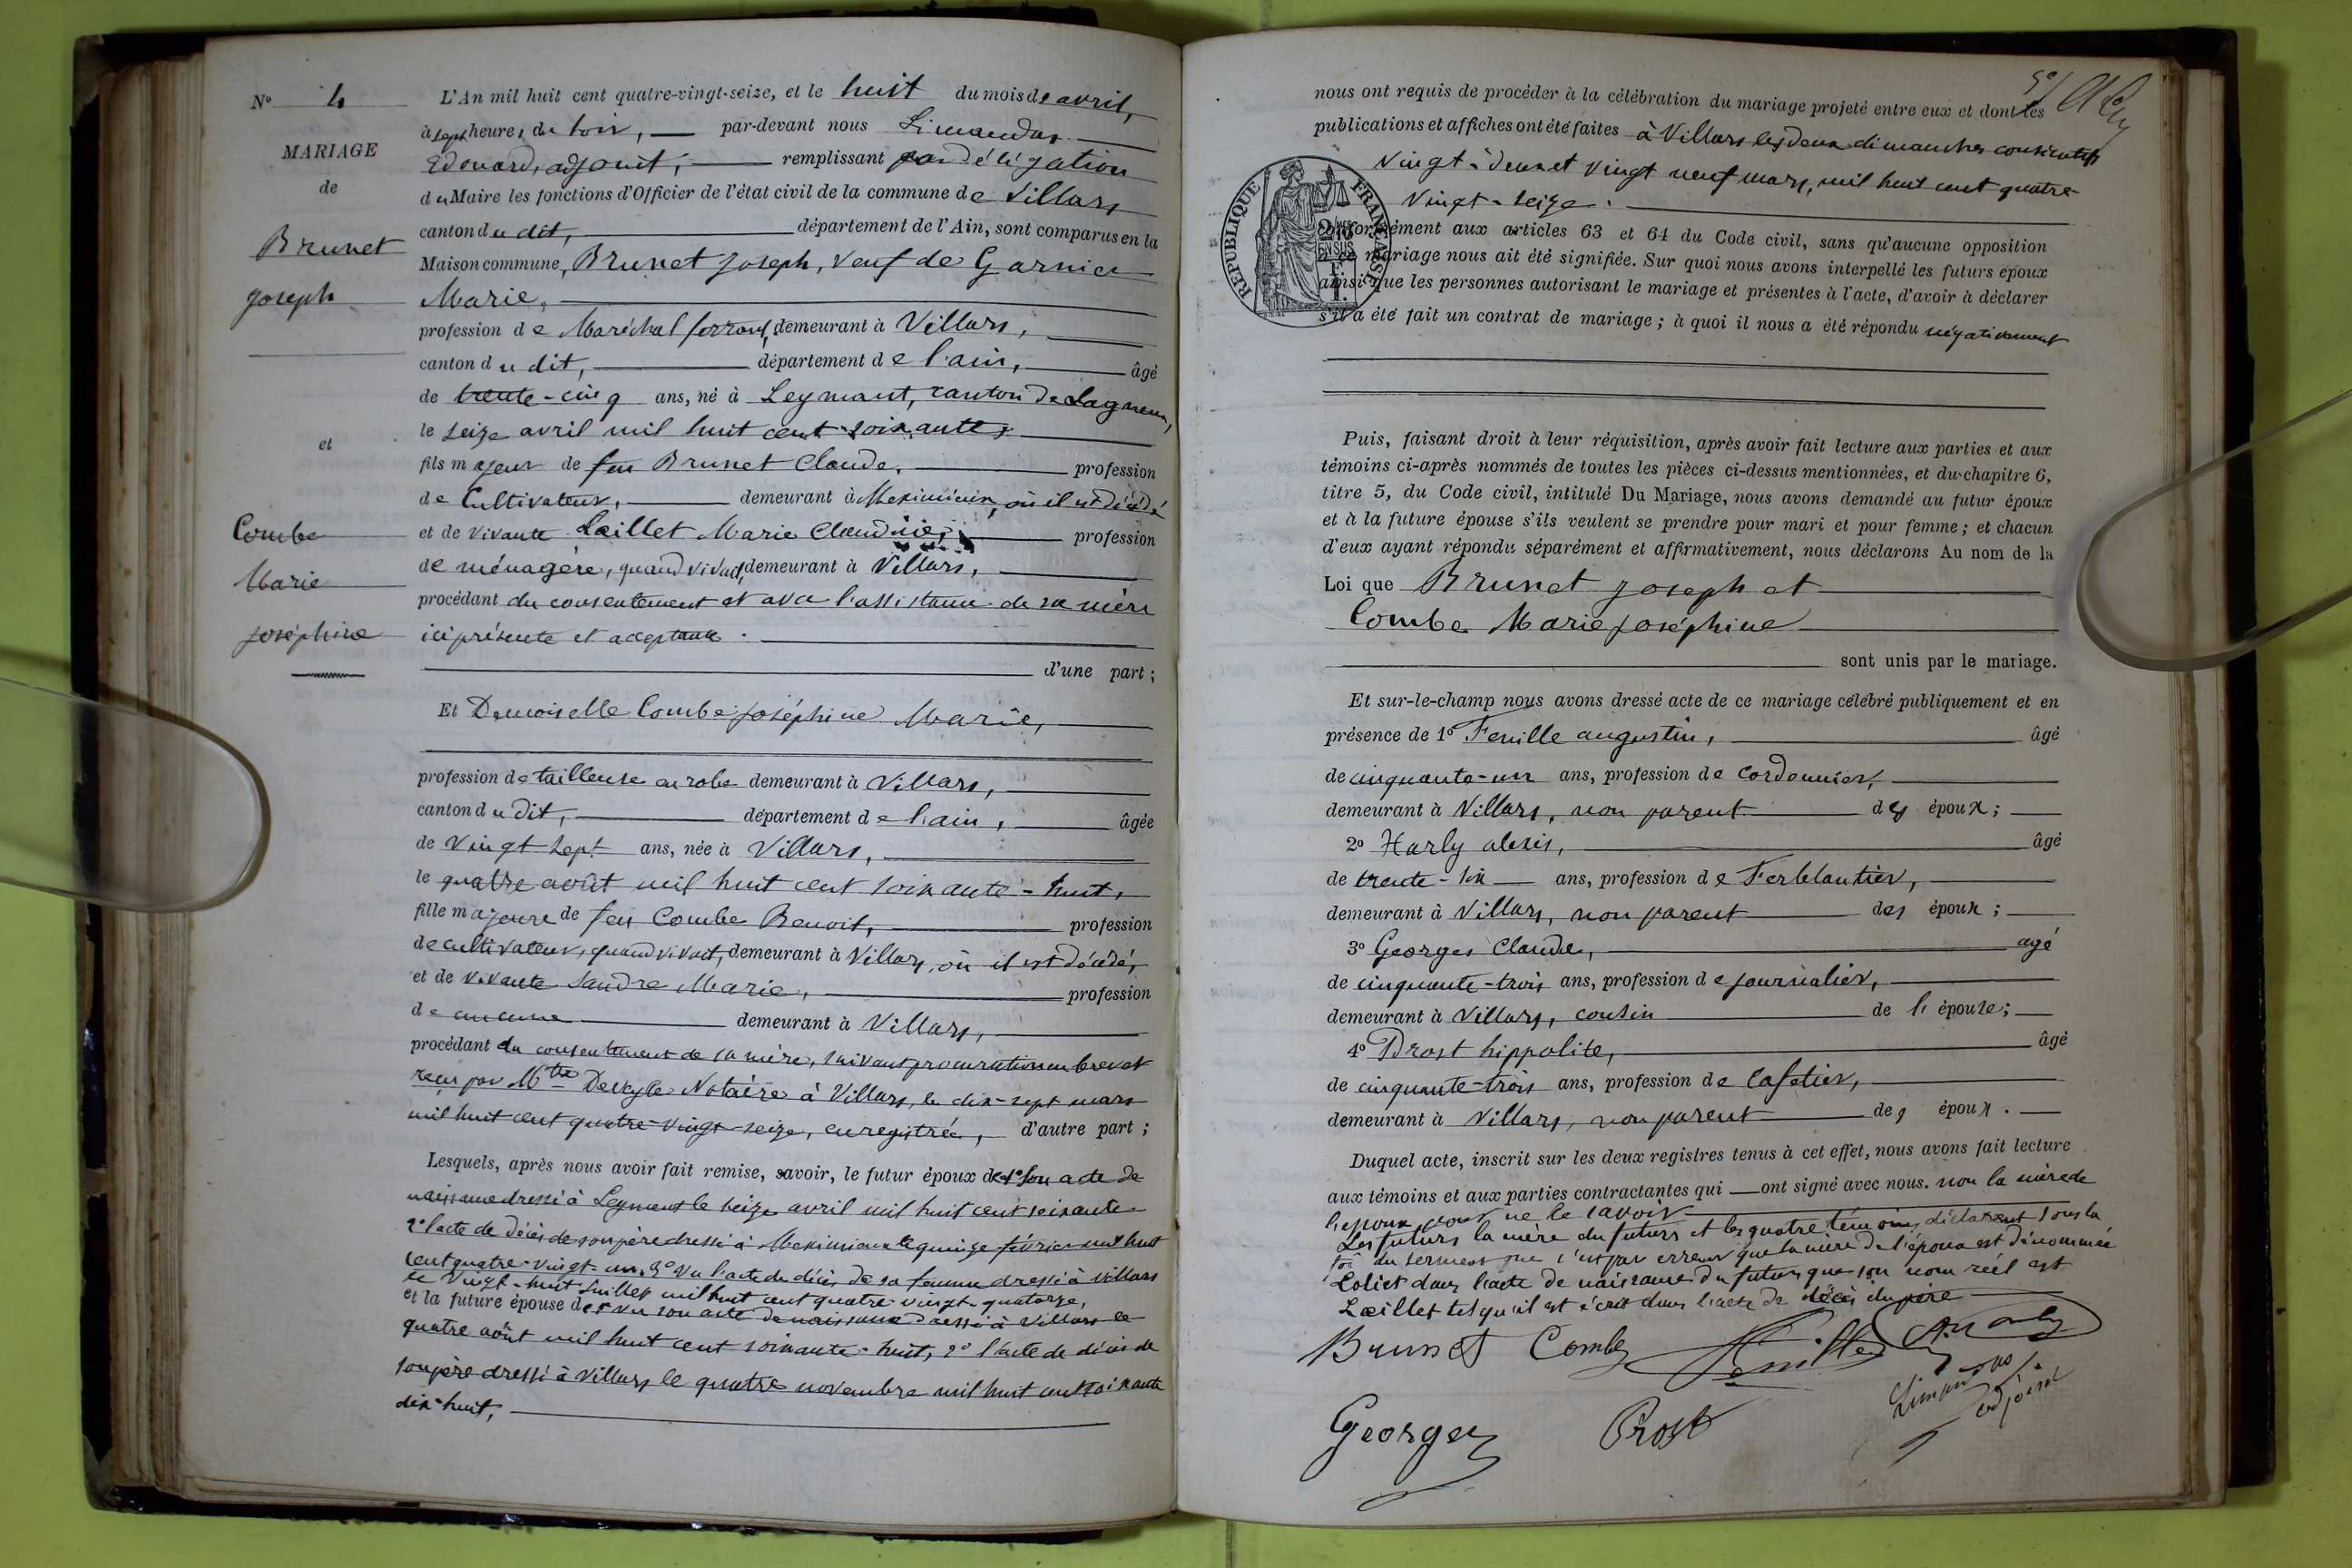 N° 4
MARIAGE
de
Brunet
Joseph
et
Combe
Marie
Joséphine
L'An mil huit cent quatre-vingt-seize, et le huit du mois de avril,
à sept heures du soir, par-devant nous Limandas
Edouard, adjoint, remplissant par délégation
du Maire les fonctions d'Officier de l'état civil de la commune de Villars
canton du dit, département de l'Ain, sont comparus en la
Maison commune, Brunet Joseph, veuf de Garnier
Marie,
profession de Maréchal ferrant, demeurant à Villars,
canton du dit, département de l'ain, âgé
de trente-cinq ans, né à Leymant, canton de Lagnieu,
le seize avril mil huit cent soixante,
fils majeur de feu Brunet Claude, profession
de Cultivateur, demeurant à Meximieux, où il est décédé
et de vivante Lœillet Marie Claudine, profession
de ménagère, quand vivait, demeurant à Villars,
procédant du consentement et avec l'assistance de sa mère
ici présente et acceptante.
d'une part ;
Et Demoiselle Combe Joséphine Marie,
profession de tailleuse en robe demeurant à Villars,
canton du dit, département de l'ain, âgée
de vingt sept ans, née à Villars,
le quatre août mil huit cent soixante-huit,
fille majeure de feu Combe Benoit, profession
de cultivateur, quand vivait, demeurant à Villars, où il est décédé,
et de vivante Sandre Marie, profession
de aucune demeurant à Villars,
procédant du consentement de sa mère, suivant procuration en brevet
reçu par Mtre Notaire à Villars, le dix-sept mars
mil huit cent quatre-vingt-seize, enregistrée, d'autre part ;
Lesquels, après nous avoir fait remise, savoir, le futur époux de 1° son acte de
naissance dressé à Leyment le seize avril mil huit cent soixante
2° l'acte de décès de son père dressé à Meximieux le quinze février mil huit
cent quatre-vingt-un, 3° Vu l'acte du décès de sa femme dressé à Villars
le vingt-huit Juillet mil huit cent quatre-vingt-quatorze,
et la future épouse de 1° Vu son acte de naissance dressé à Villars le
quatre août mil huit cent soixante-huit, 2° l'acte de décès de
son père dressé à Villars le quatre novembre mil huit cent soixante
dix-huit,
nous ont requis de procéder à la célébration du mariage projeté entre eux et dont les
publications et affiches ont été faites à Villars les deux dimanches consécutifs
vingt-deux et vingt neuf mars, mil huit cent quatre-
vingt-seize.
RÉPUBLIQUE FRANÇAISE
2/10 EN SUS
1F.
conformément aux articles 63 et 64 du Code civil, sans qu'aucune opposition
à ce mariage nous ait été signifiée. Sur quoi nous avons interpellé les futurs époux
ainsi que les personnes autorisant le mariage et présentes à l'acte, d'avoir à déclarer
s'il a été fait un contrat de mariage ; à quoi il nous a été répondu négativement
Puis, faisant droit à leur réquisition, après avoir fait lecture aux parties et aux
témoins ci-après nommés de toutes les pièces ci-dessus mentionnées, et du chapitre 6,
titre 5, du Code civil, intitulé Du Mariage, nous avons demandé au futur époux
et à la future épouse s'ils veulent se prendre pour mari et pour femme ; et chacun
d'eux ayant répondu séparément et affirmativement, nous déclarons Au nom de la
Loi que Brunet Joseph et
Combe Marie Joséphine
sont unis par le mariage.
Et sur-le-champ nous avons dressé acte de ce mariage célébré publiquement et en
présence de 1° Feuille augustin, âgé
de cinquante-un ans, profession de cordonnier,
demeurant à Villars, non parent des époux ;
2° Harly alexis, âgé
de trente-six ans, profession de Ferblantier,
demeurant à Villars, non parent des époux ;
3° Georges Claude, agé
de cinquante-trois ans, profession de journalier,
demeurant à Villars, cousin de l'épouse ;
4° Prost hippolite, âgé
de cinquante-trois ans, profession de Cafetier,
demeurant à Villars, non parent des époux.
Duquel acte, inscrit sur les deux registres tenus à cet effet, nous avons fait lecture
aux témoins et aux parties contractantes qui ont signé avec nous. non la mère de
l'époux pour ne le savoir
Les futurs la mère du futurs et les quatre témoins déclarent sous la
foi du serment que c'est par erreur que la mère de l'époux est dénommée
Loliet dans l'acte de naissance du futur que son nom réel est
Lœillet tel qu'il est écrit dans l'acte de décès du père
Brunet Combe Feuille A. Harly
Georges Prost Limandas
adjoint